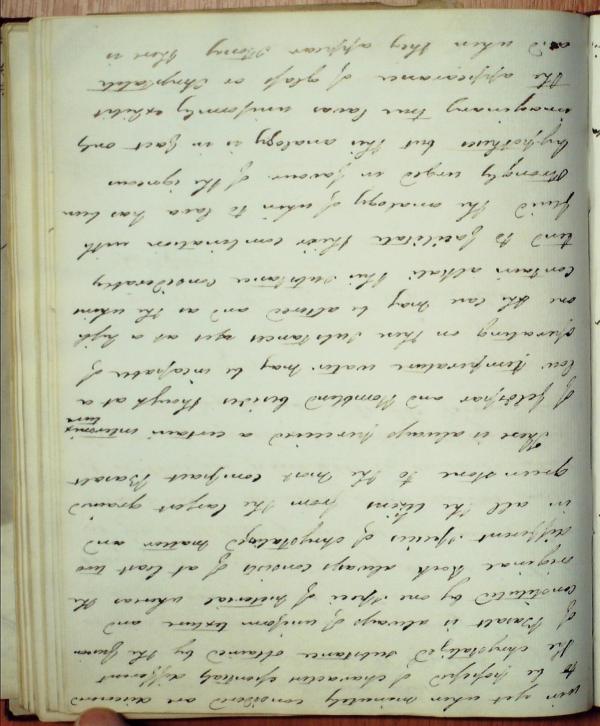 yet when minutely considered are discovered
to be possessed of characters essentially different
the chrystalized substance obtained by the fusion
of Basalt is always of uniform texture and
constituted by one species of material whereas the
original Rock always consists of at least two
different species of chrystalized matter and
in all the from the largest grained
green stone to the most compact Basalt
There is always perceived a certain intermix
ture
of feldspar and Hornblend besides though at a
low temperature water may be incapable of
operating on these substances yet at a high
one the case may be altered and as the whins
contain alkali this substance considerably
tend to facilitate their combination with
fluid The analogy of whin to lava has been
strongly urged in favour of the igneous
hypothesis but this analogy is in fact only
imaginary true lavas uniformly exhibit
the appearance of glass or chrystallite
and when they appear stony there is